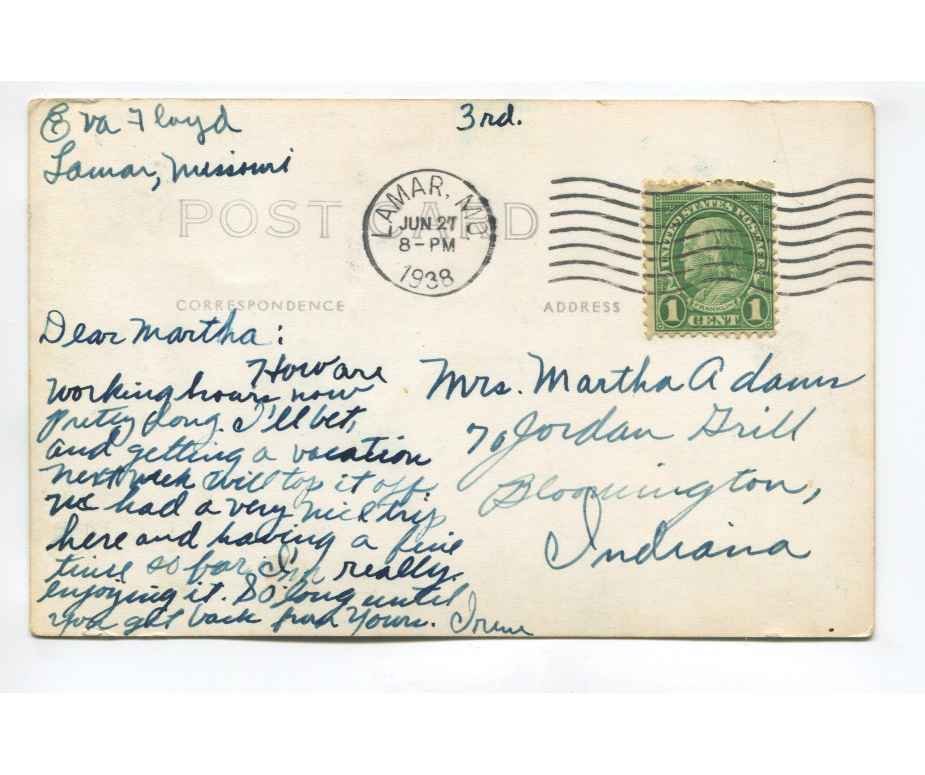 Eva Floyd
3rd.
Lamar, Missouri
POST CARD
LAMAR, MO
JUN 27
8-PM
1938
UNITED STATES POSTAGE
FRANKLIN
1 CENT 1
CORRESPONDENCE
ADDRESS
Dear Martha:
How are
working hours now
Pretty long. I'll bet,
and getting a vacation
next week will top it off
we had a very nice trip
here and having a fine
time so far I'm really
enjoying it. So long until
you get back from yours. Irene
Mrs. Martha Adams
℅ Jordan Grill
Bloomington,
Indiana